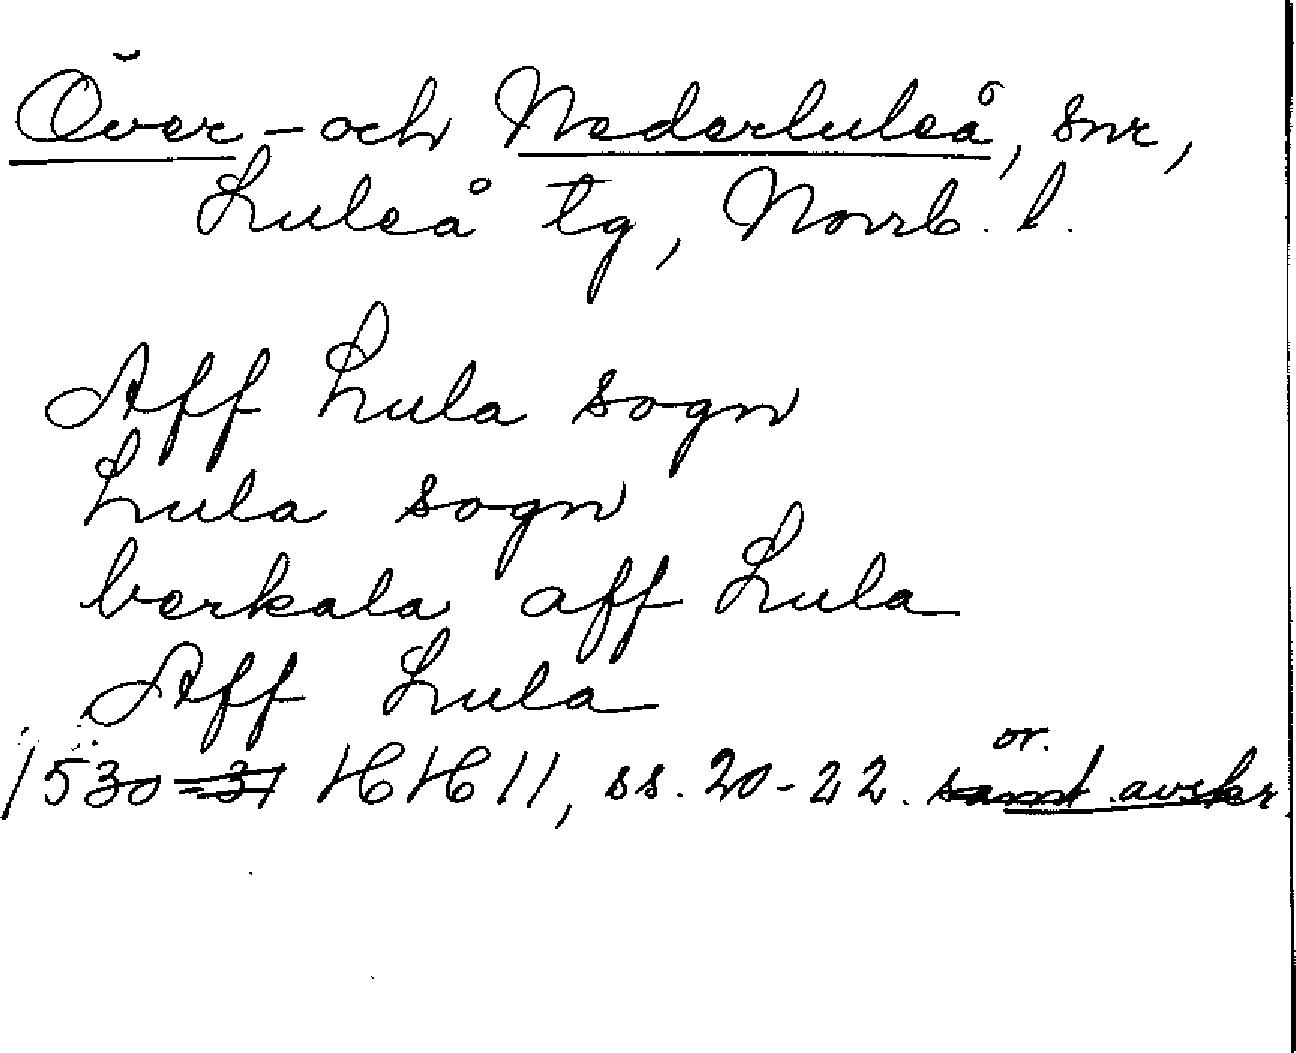 Över- och Nederluleå, snr,
Luleå tg, Norrb. l.
Aff Lula sogn
Lula sogn
berkala aff Lula
Aff Lula
or.
1530-31 HH 11, ss. 20-22. samt avskr.